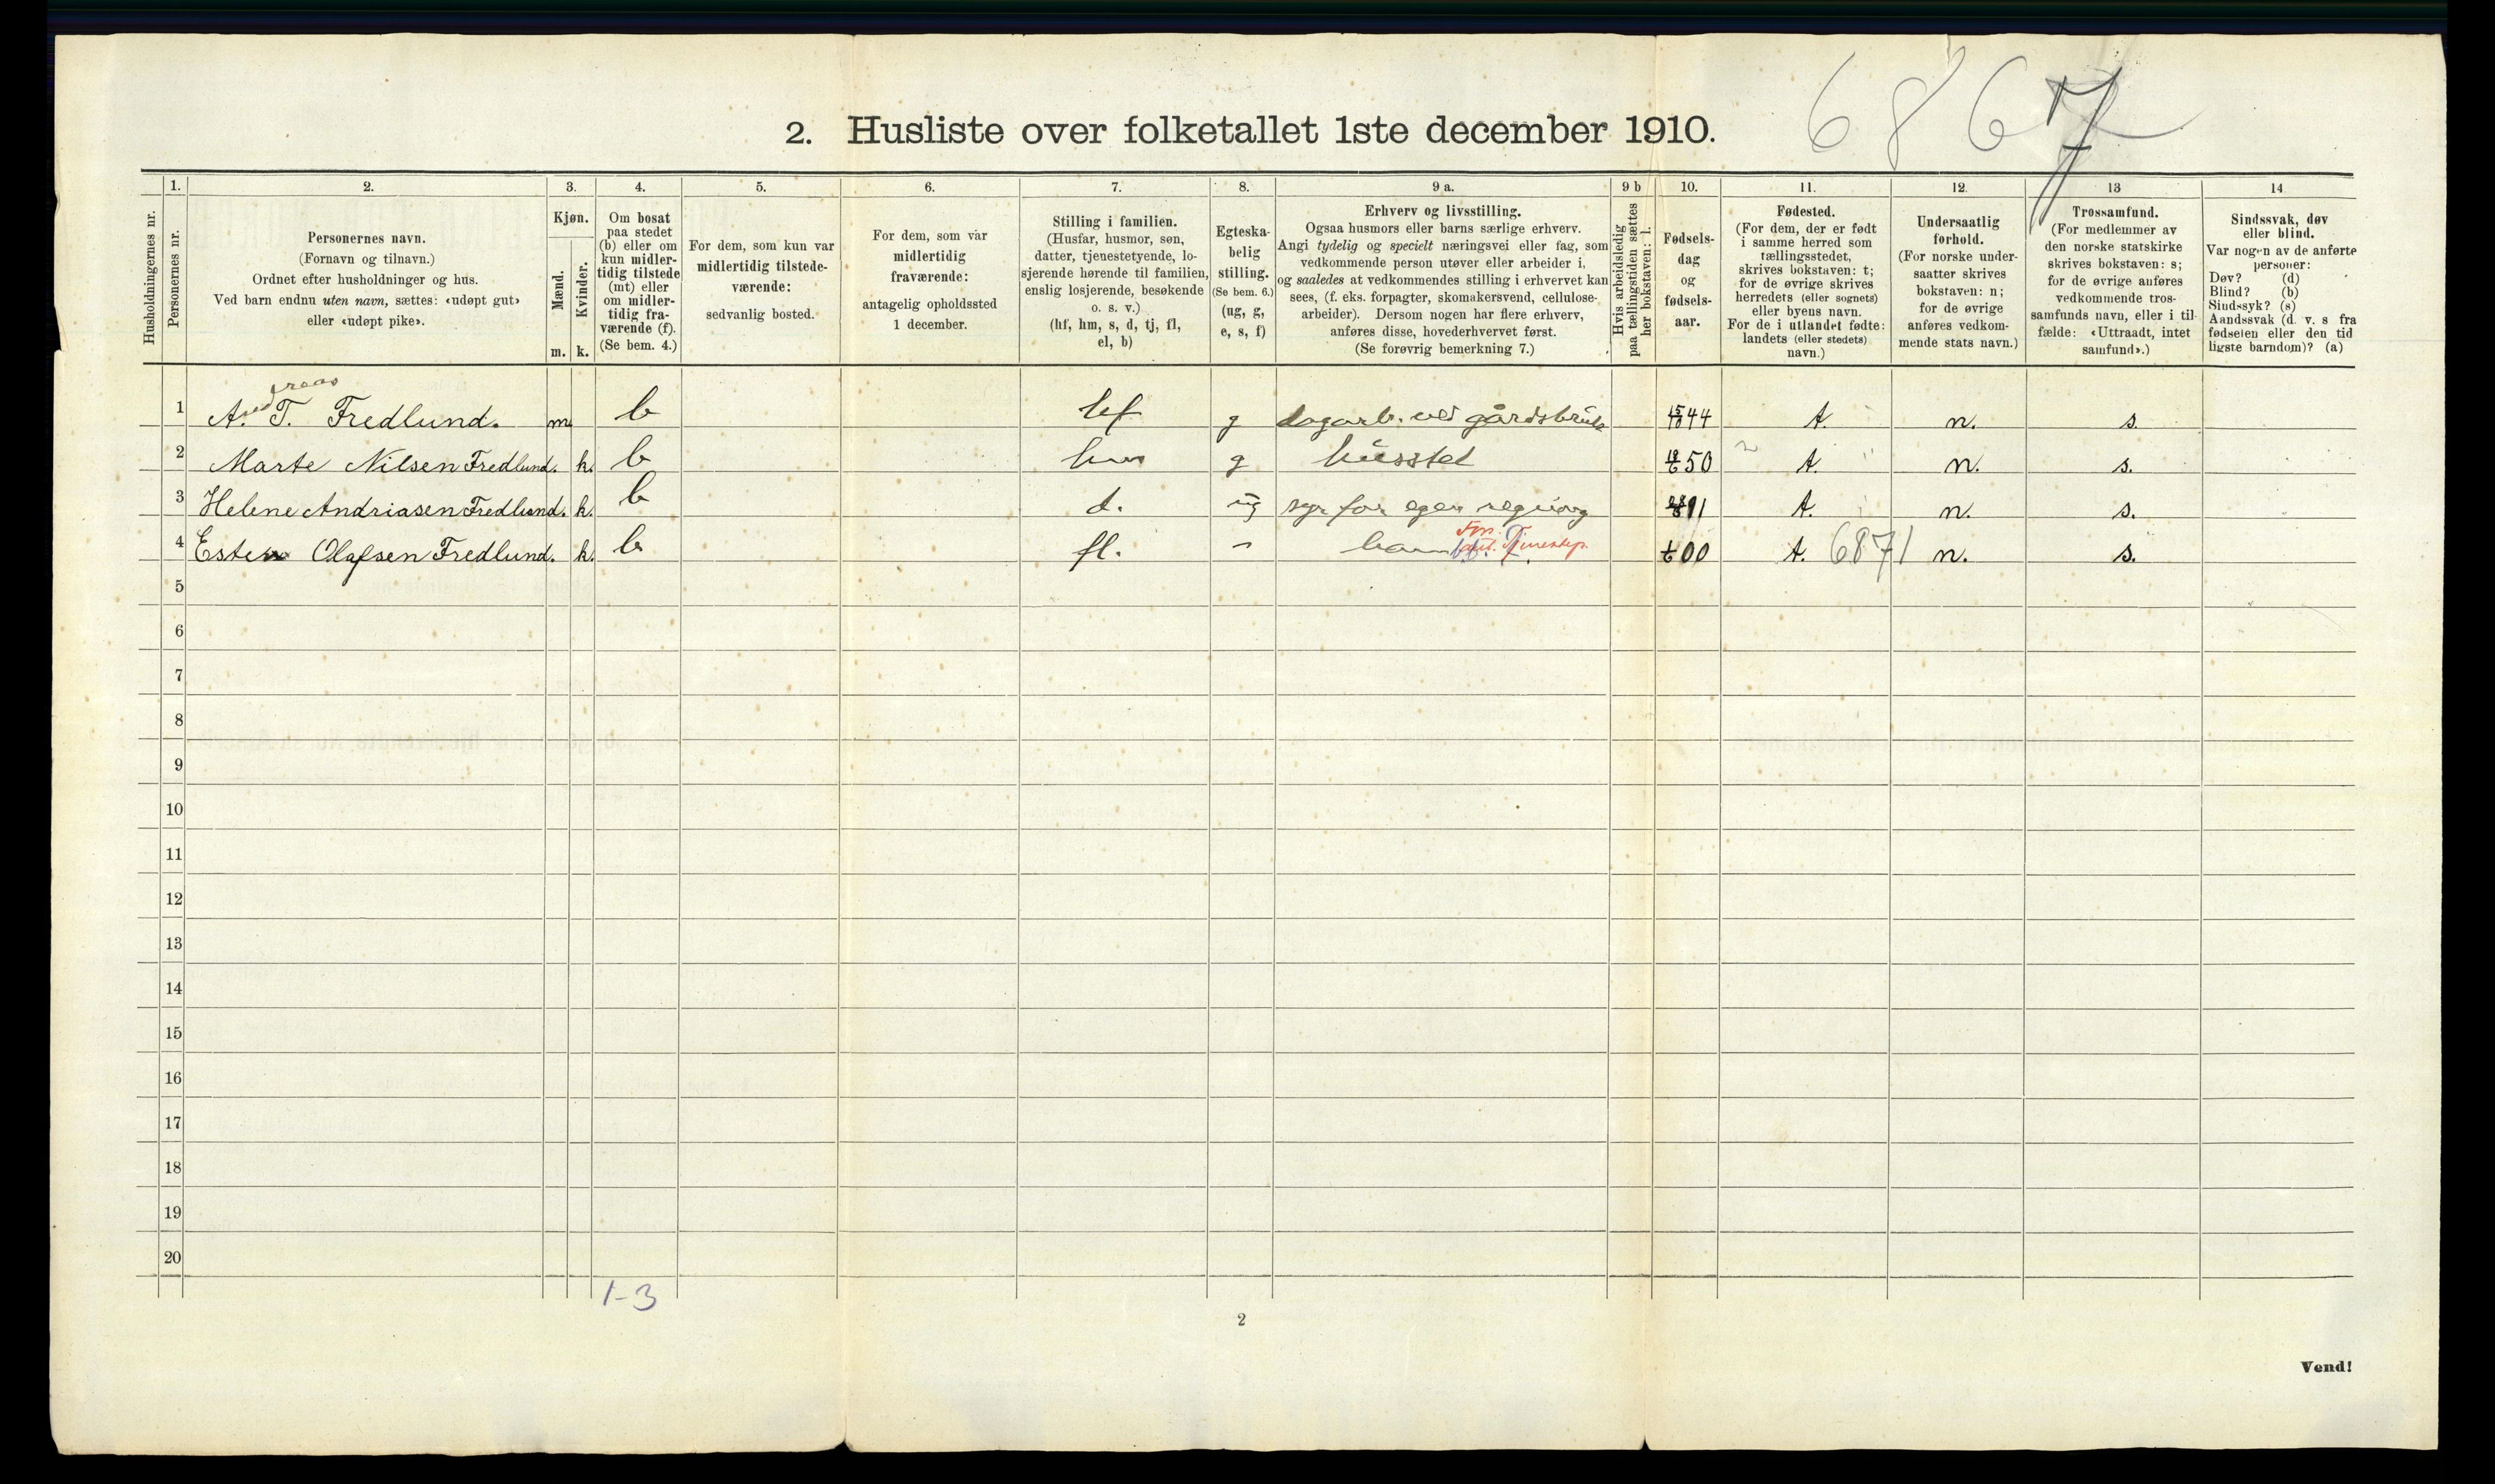 6867
2. Husliste over folketallet 1ste december 1910.
Husholdningernes nr.
1.
Personernes nr.
2.
Personernes navn.
(Fornavn og tilnavn.)
Ordnet efter husholdninger og hus.
Ved barn endnu uten navn, sættes: «udøpt gut»
eller «udøpt pike».
3.
Kjøn.
Mænd.
m.
Kvinder.
k.
4.
Om bosat
paa stedet
(b) eller om
kun midler-
tidig tilstede
(mt) eller
om midler-
tidig fra-
værende (f).
(Se bem. 4.)
5.
For dem, som kun var
midlertidig tilstede-
værende:
sedvanlig bosted.
6.
For dem, som var
midlertidig
fraværende:
antagelig opholdssted
1 december.
7.
Stilling i familien.
(Husfar, husmor, søn,
datter, tjenestetyende, lo-
sjerende hørende til familien,
enslig losjerende, besøkende
o. s. v.)
(hf, hm, s, d, tj, fl,
el, b)
8.
Egteska-
belig
stilling.
(Se bem. 6.)
(ug, g,
e, s, f)
9 a.
Erhverv og livsstilling.
Ogsaa husmors eller barns særlige erhverv.
Angi tydelig og specielt næringsvei eller fag, som
vedkommende person utøver eller arbeider i,
og saaledes at vedkommendes stilling i erhvervet kan
sees, (f. eks. forpagter, skomakersvend, cellulose-
arbeider). Dersom nogen har flere erhverv,
anføres disse, hovederhvervet først.
(Se forøvrig bemerkning 7.)
9 b
Hvis arbeidsledig
paa tællingstiden sættes
her bokstaven: l.
10.
Fødsels-
dag
og
fødsels-
aar.
11.
Fødested.
(For dem, der er født
i samme herred som
tællingsstedet,
skrives bokstaven: t;
for de øvrige skrives
herredets (eller sognets)
eller byens navn.
For de i utlandet fødte:
landets (eller stedets)
navn.)
12.
Undersaatlig
forhold.
(For norske under-
saatter skrives
bokstaven: n;
for de øvrige
anføres vedkom-
mende stats navn.)
13
Trossamfund.
(For medlemmer av
den norske statskirke
skrives bokstaven: s;
for de øvrige anføres
vedkommende tros-
samfunds navn, eller i til-
fælde: «Uttraadt, intet
samfund».)
14
Sindssvak, døv
eller blind.
Var nogen av de anførte
personer:
Døv? (d)
Blind? (b)
Sindssyk? (s)
Aandssvak (d. v. s fra
fødselen eller den tid
ligste barndom)? (a)
1 A. T. Fredlund. m b hf g dagarb. ved gårdsbruk 44 t. n. s.
2 Marte Nilsen Fredlund. k. b hm g husstel 50 t. n. s.
3 Helene Andriasen Fredlund. k. b d. ug syr for egen regning 91 t. n. s.
4 Olafsen Fredlund. k. b fl. - barn 00 t. 6871 n. s.
5
6
7
8
9
10
11
12
13
14
15
16
17
18
19
20
1-3
2
Vend!